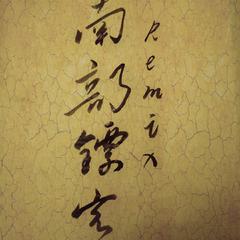 南部镖客
Remix